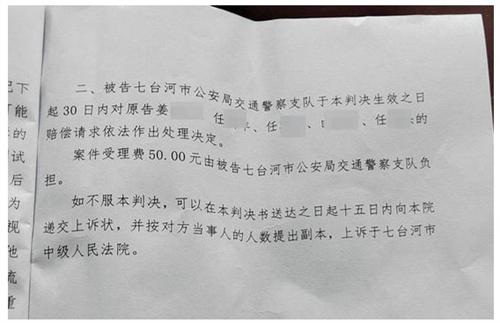 二、被告七台河市公安局交通警察支队于本判决生效之日
起30日内对原告姜 任 、任 、 、任 的
赔偿请求依法作出处理决定。
案件受理费50.00元由被告七台河市公安局交通警察支队负
担。
如不服本判决，可以在本判决书送达之日起十五日内向本院
递交上诉状，并按对方当事人的人数提出副本，上诉于七台河市
中级人民法院。
下
能
的
试
后
为
视
他
流
重